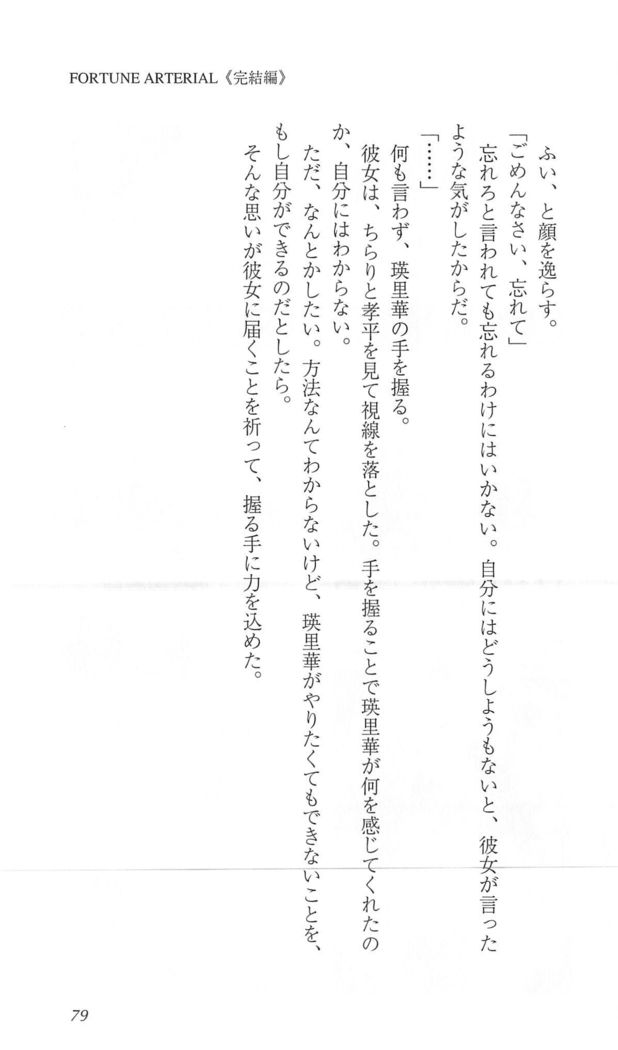 FORTUNE ARTERIAL《完結編》
ふい、と顔を逸らす。
「ごめんなさい、忘れて」
忘れろと言われても忘れるわけにはいかない。自分にはどうしようもないと、彼女が言った
ような気がしたからだ。
「……」
何も言わず、瑛里華の手を握る。
彼女は、ちらりと孝平を見て視線を落とした。手を握ることで瑛里華が何を感じてくれたの
か、自分にはわからない。
ただ、なんとかしたい。方法なんてわからないけど、瑛里華がやりたくてもできないことを、
もし自分ができるのだとしたら。
そんな思いが彼女に届くことを祈って、握る手に力を込めた。
79